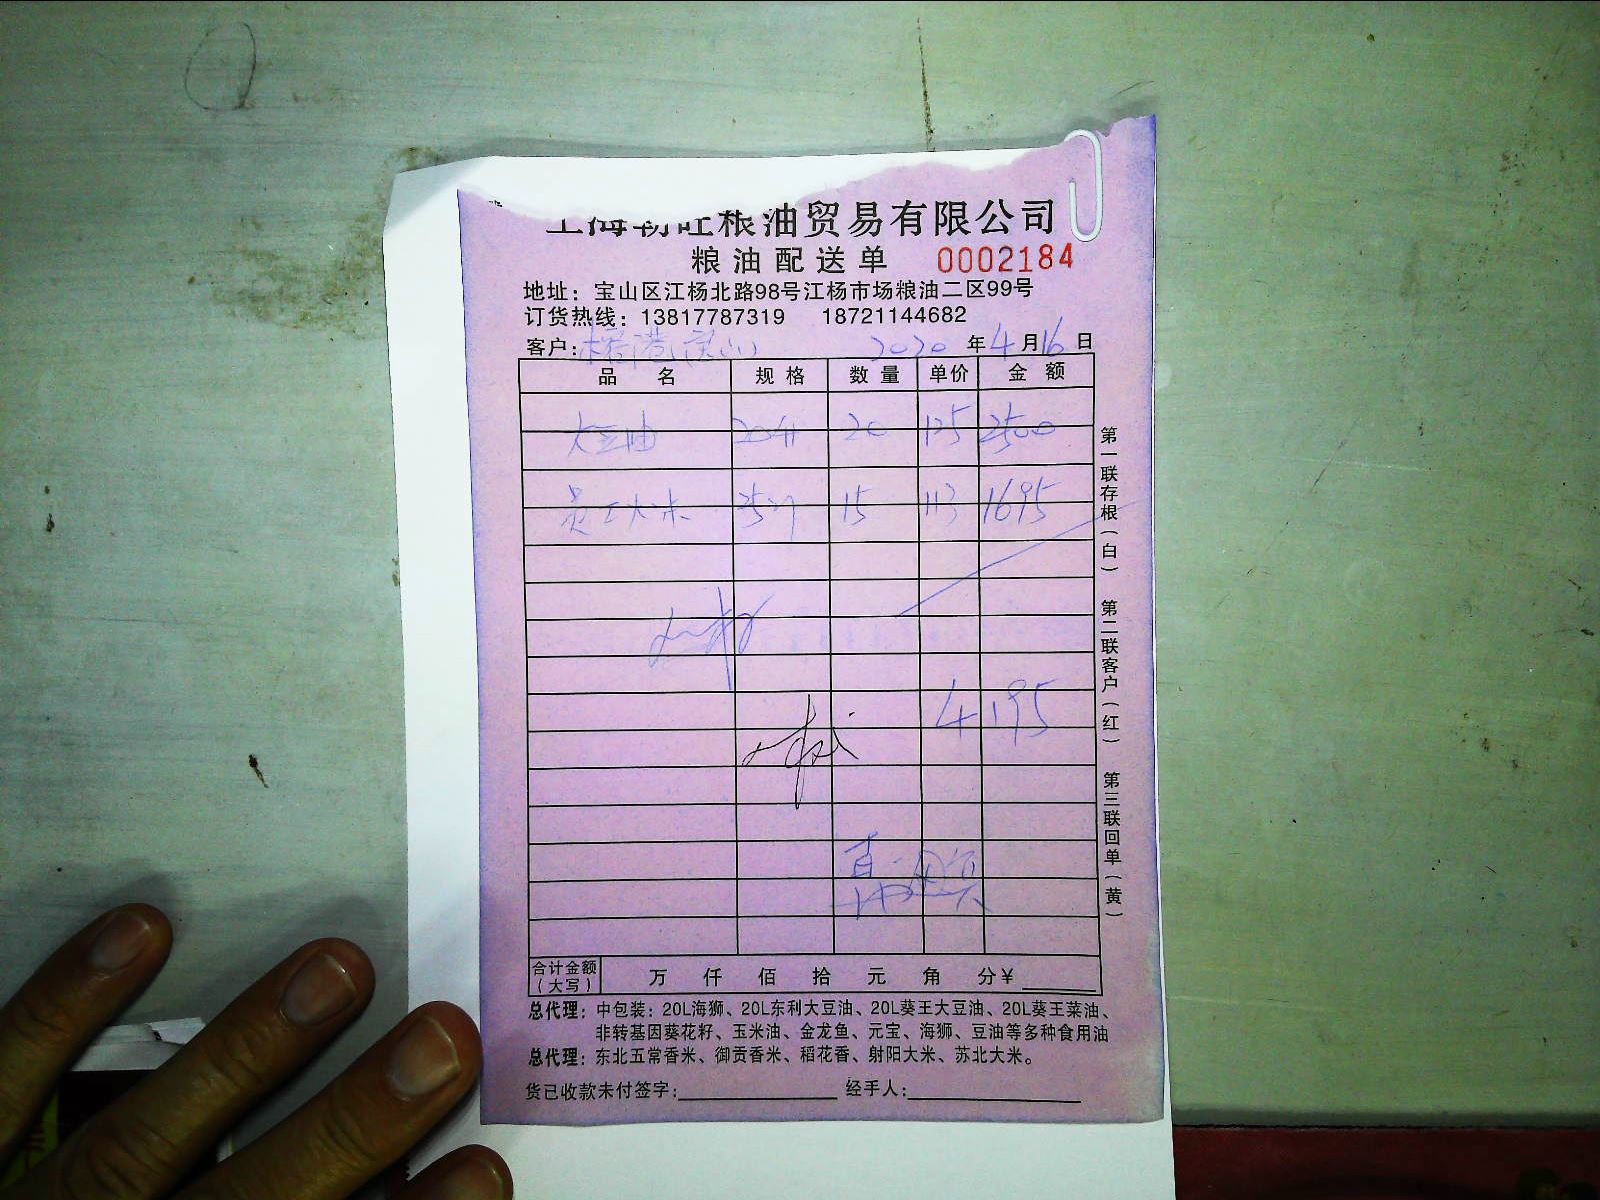 上海勒旺粮油贸易有限公司
粮油配送单 0002184
地址：宝山区江杨北路98号江杨市场粮油二区99号
订货热线：13817787319 18721144682
客户： 2020年4月16日
品名 规格 数量 单价 金额
大豆油 20升 20 125 2500
员工大米 25 15 113 1695
4195
合计金额（大写） 万 仟 佰 拾 元 角 分￥
总代理：中包装：20L海狮、20L东利大豆油、20L葵王大豆油、20L葵王菜油、
非转基因葵花籽、玉米油、金龙鱼、元宝、海狮、豆油等多种食用油
总代理：东北五常香米、御贡香米、稻花香、射阳大米、苏北大米。
货已收款未付签字： 经手人：
第一联存根（白） 第二联客户（红） 第三联回单（黄）